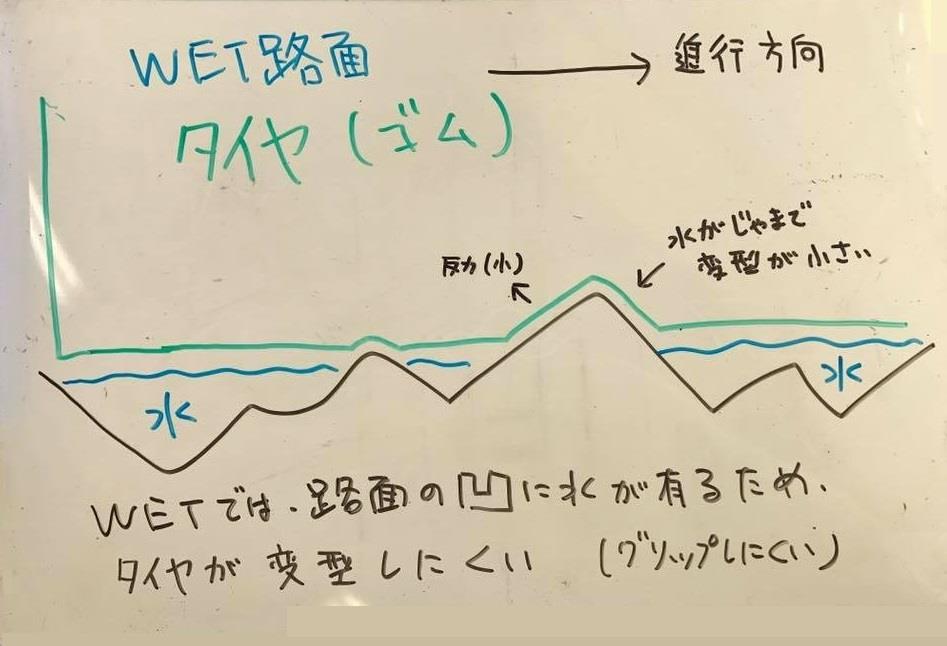 WET路面
進行方向
タイヤ(ゴム)
水がじゃまで
変型が小さい
反力(小)
水
水
WETでは、路面の凹に水が有るため、
タイヤが変型しにくい (グリップしにくい)